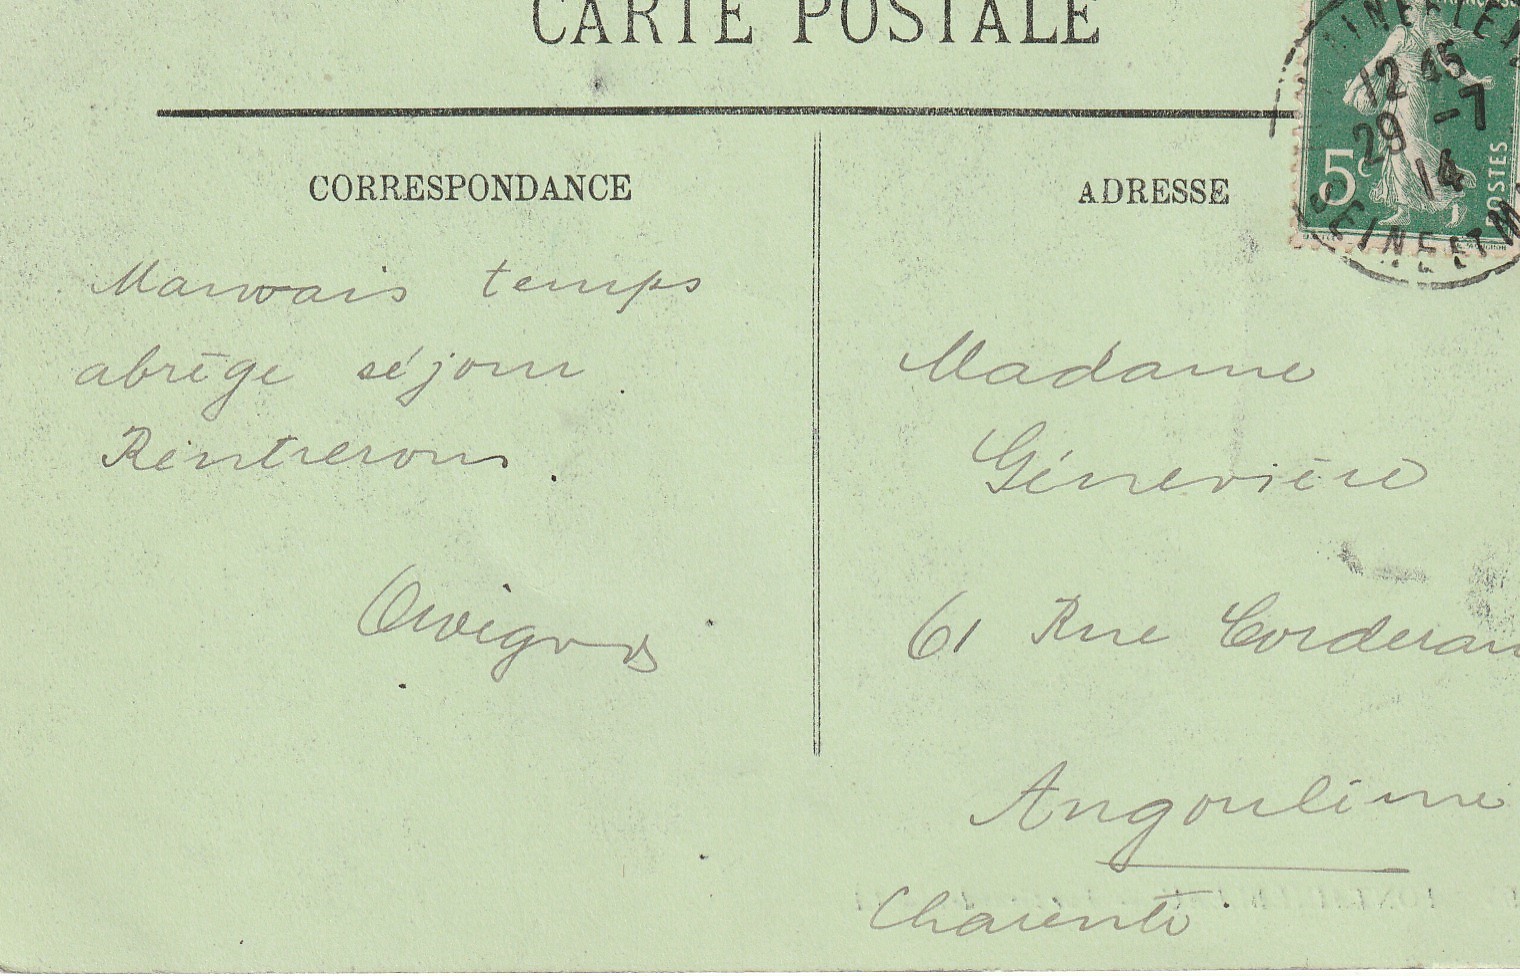 CARTE POSTALE
CORRESPONDANCE
Mauvais temps
abrège séjour.
Rentrerons.
ADRESSE
Madame
Génevière
61 Rue Corderan
Angoulême
Charente
5c
POSTES
12 45
29 -7
14
SEINE ET M